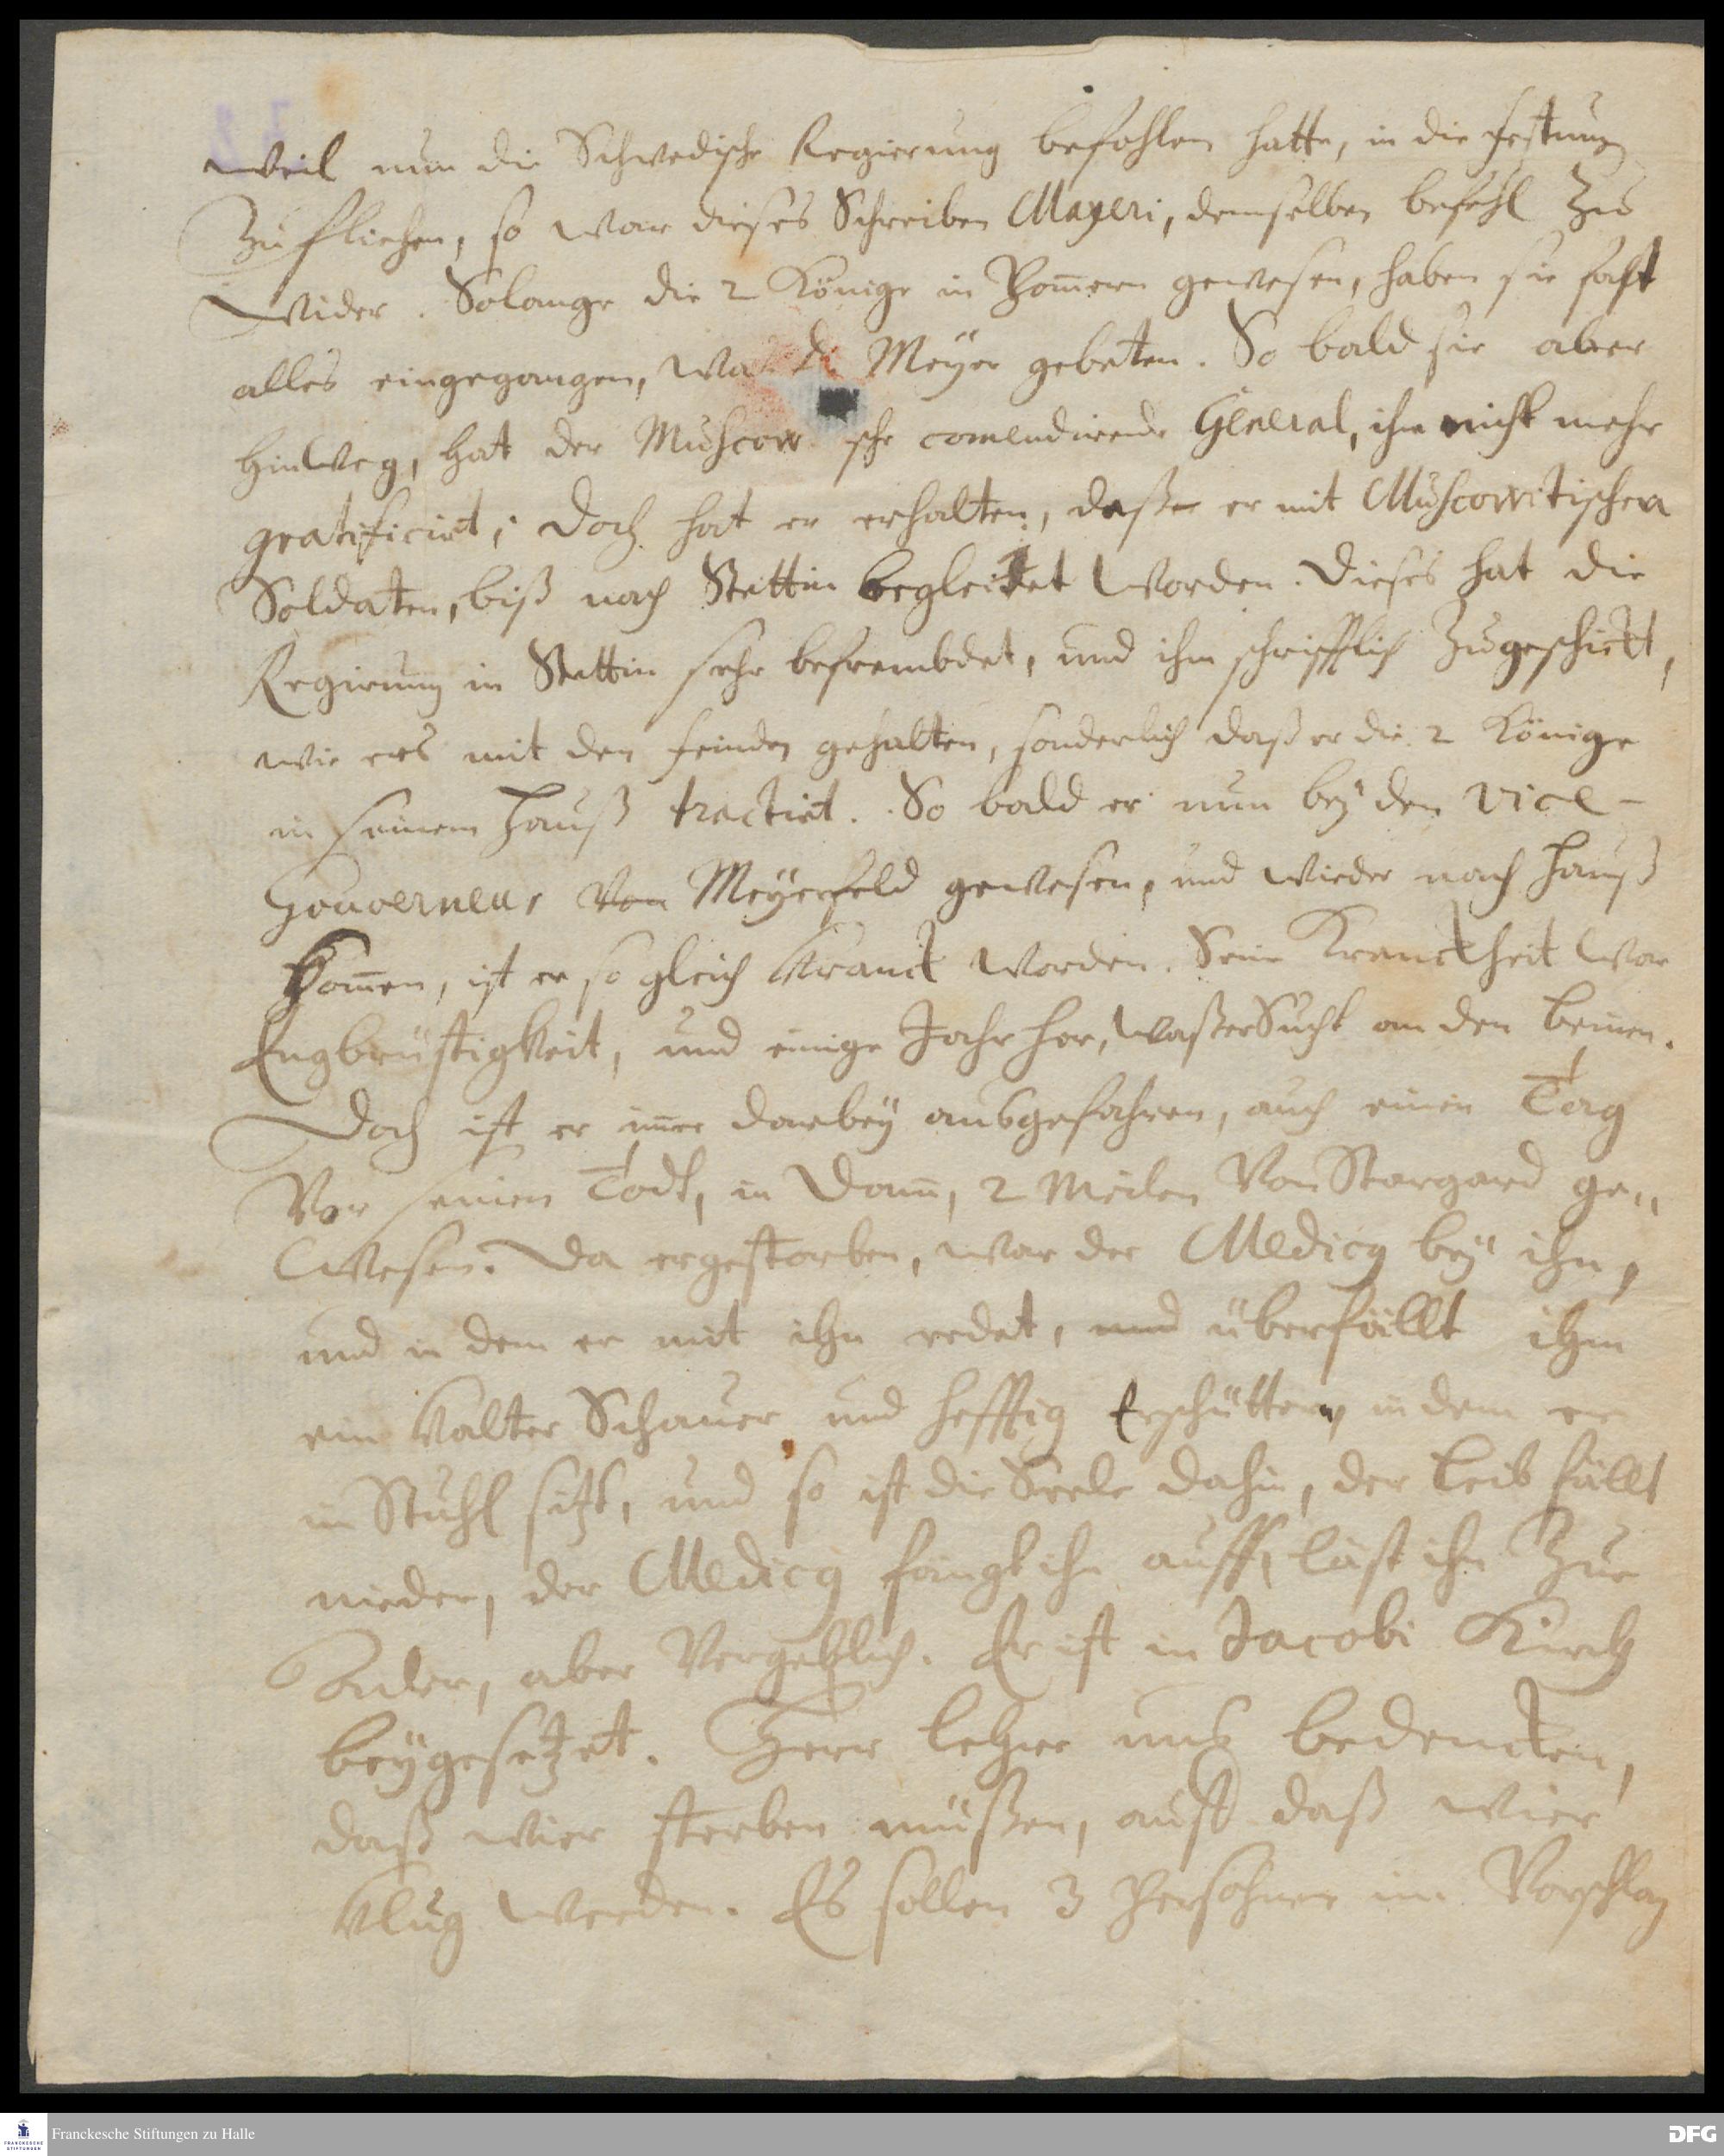 weil nun die Schwedische Regierung befohlen hatte, in die festung
Zu fliehen, so war dieses Schreiben Mayeri, demselben befehl Zu
wider. Solange die 2 Könige in Pom̄ern gewesen, haben sie fast
alles eingegangen, wa D. Meÿer gebeten. So bald sie aber
hinweg, hat der Muscow sche comendirende General, ihm nicht mehr
gratificirt; doch hat er erhalten, daß er mit Muscowitischen
Soldaten, biß nach Stettin begleitet worden. Dieses hat die
Regirung in Stettin sehr befrembdet, und ihm schrifftlich Zugeschickt,
wie ers mit den feinden gehalten, sonderlich daß er die 2 Könige
in seinem Hauß tractirt. So bald er nun beÿ den Vice-
Gouverneur von Meÿerfeld gewesen, und wieder nach Hauß
kom̄en, ist er so gleich Kranck worden. Seine Kranckheit war
Engbrüstigkeit, und einige Jahr her, waßerSucht an den beinen.
Doch ist er im̄er darbeÿ ausgefahren, auch einen Tag
Vor seinen Todt, in Dam̄, 2 Meilen Von Stargard ge„
wesen. Da er gestorben, war der Medicq beÿ ihn,
und in dem er mit ihn redet, und überfällt ihm
ein Kalter Schauer und hefftig Erschüttern, in dem er
im Stuhl sitzt, und so ist die Seele dahin, der leib fällt
nieder, der Medicq fängt ihn auff, läst ihn Zur
Ader, aber Vergeblich. Er ist in Jacobi Kirch
beÿgesetzet. Herr lehre uns bedencken,
daß wier sterben müßen, auff daß wier
Klug werden. Es sollen 3 Persohnen im Vorschlag
Franckesche Stiftungen zu Halle
FRANCKESCHE
STIFTUNGEN
DFG